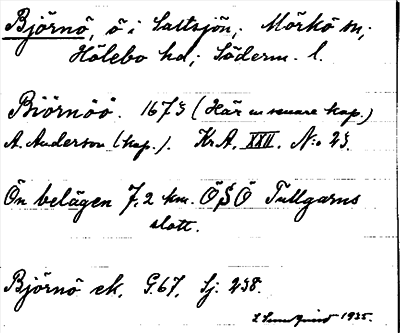 Björnö, ö i Saltsjön; Mörkö sn;
Hölebo hd; Söderm. l.
Biörnöö. 1675 (Här en senare kop.)
A. Anderson (kop.). Kr.A. XXII. N:o 25.
Ön belägen 7,2 km. ÖSÖ Tullgarns
slott.
Björnö ek. G.67, Sj. 238.
1935.